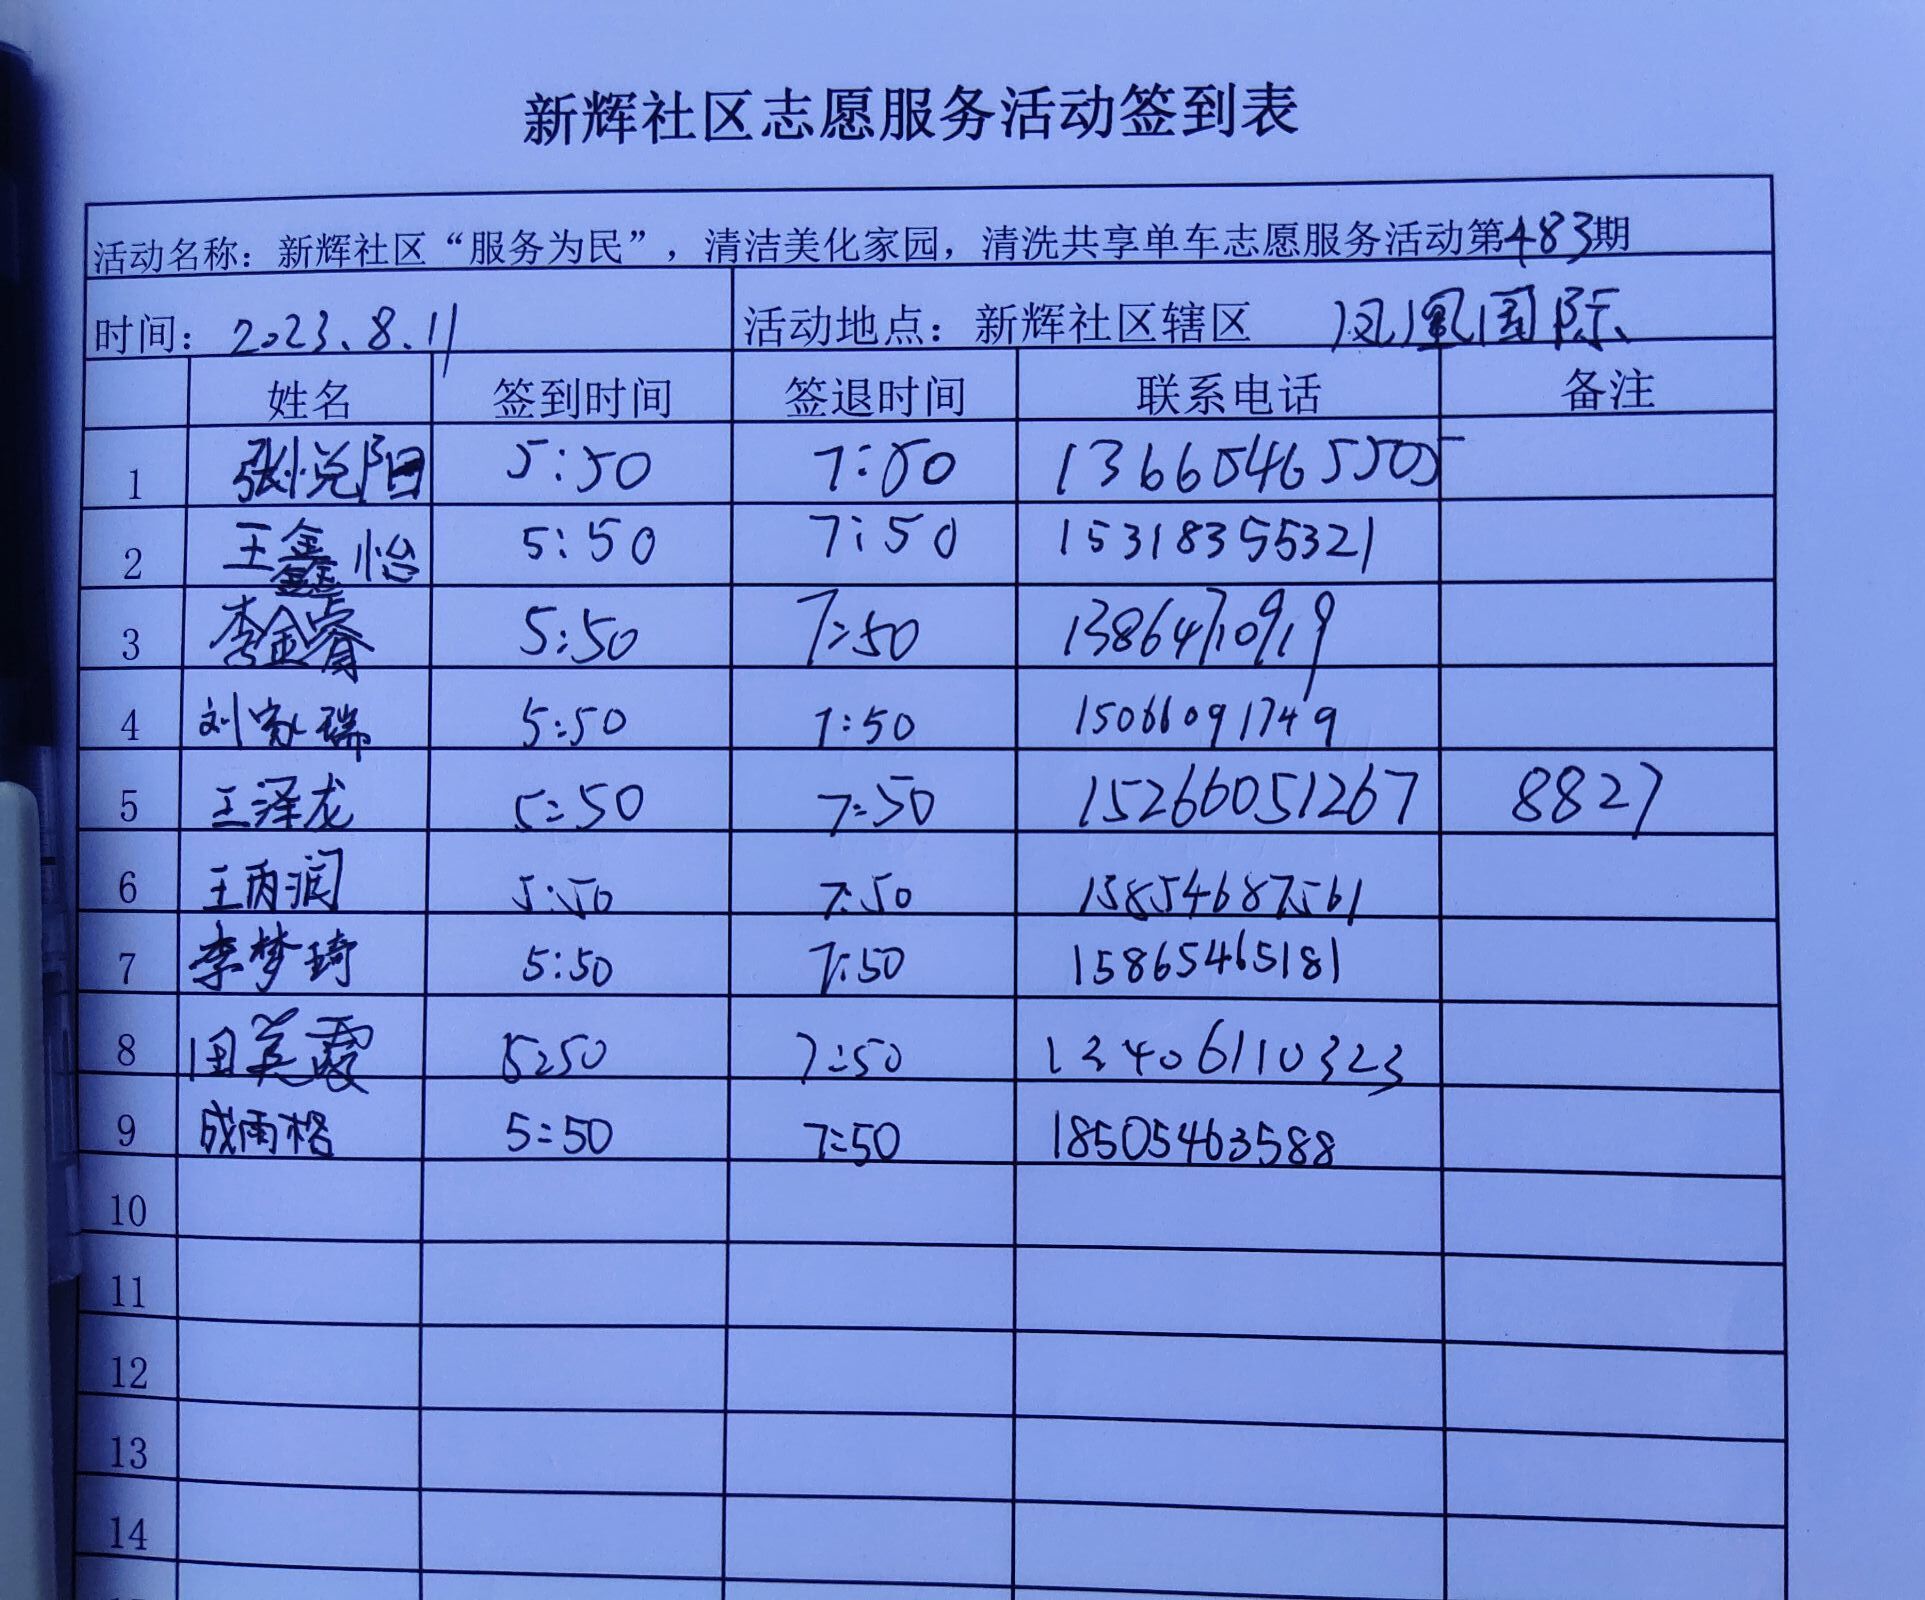 新辉社区志愿服务活动签到表
活动名称：新辉社区“服务为民”，清洁美化家园，清洗共享单车志愿服务活动第483期
时间：2023.8.11 活动地点：新辉社区辖区 凤凰国际
姓名 签到时间 签退时间 联系电话 备注
1 张悦阳 5:50 7:50 13665465505
2 王鑫怡 5:50 7:50 15318355321
3 李金睿 5:50 7:50 13864710919
4 刘家瑞 5:50 7:50 15066091749
5 王泽龙 5:50 7:50 15266051267 8827
6 王丙润 5:50 7:50 15854687561
7 李梦琦 5:50 7:50 15865465181
8 田英霞 5:50 7:50 13406110323
9 成雨格 5:50 7:50 18505463588
10
11
12
13
14